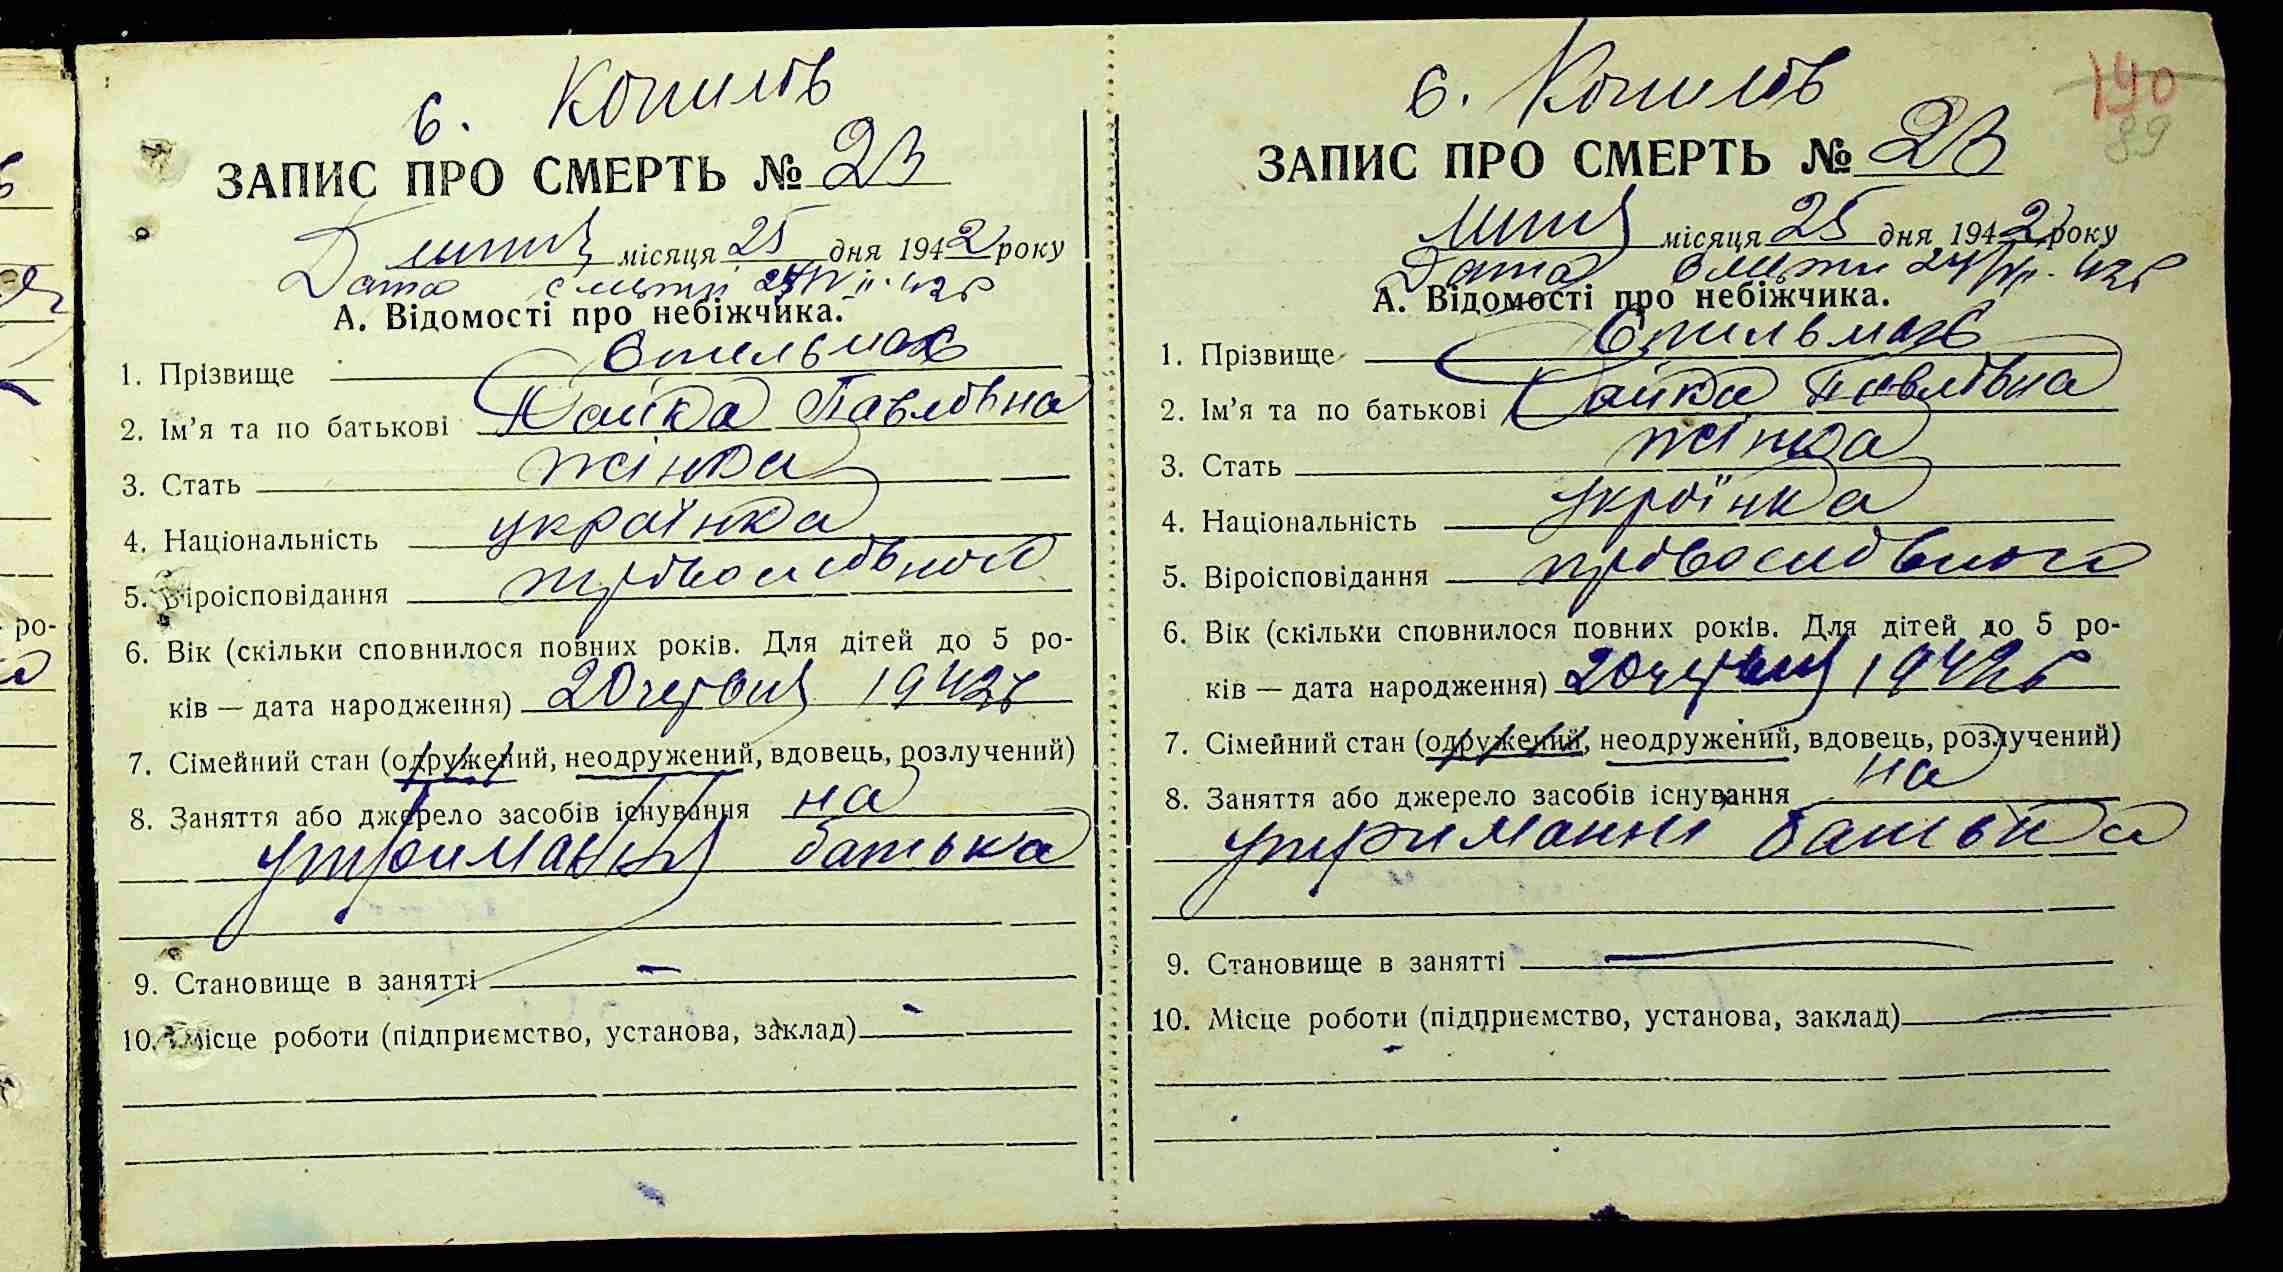 с. Копилів
ЗАПИС ПРО СМЕРТЬ № 23
липня місяця 25 дня 1942 року
Дата смерти 24/VII. 42 р
А. Відомості про небіжчика.
1. Прізвище Стельмах
2. Ім'я та по батькові Павлівна
3. Стать жінка
4. Національність українка
5. Віроісповідання православного
6. Вік (скільки сповнилося повних років. Для дітей до 5 ро-
ків — дата народження) 20 червня 1942 р
7. Сімейний стан (одружений, неодружений, вдовець, розлучений)
8. Заняття або джерело засобів існування на
утриманні батька
9. Становище в занятті —
10. Місце роботи (підприємство, установа, заклад) —
190
89
с. Копилів
ЗАПИС ПРО СМЕРТЬ № 23
липня місяця 25 дня 1942 року
Дата смерти 24/VII. 42 р
А. Відомості про небіжчика.
1. Прізвище Стельмах
2. Ім'я та по батькові Павлівна
3. Стать жінка
4. Національність українка
5. Віроісповідання православного
6. Вік (скільки сповнилося повних років. Для дітей до 5 ро-
ків — дата народження) 20 червня 1942 р
7. Сімейний стан (одружений, неодружений, вдовець, розлучений)
8. Заняття або джерело засобів існування на
утриманні батька
9. Становище в занятті —
10. Місце роботи (підприємство, установа, заклад) —
ро-